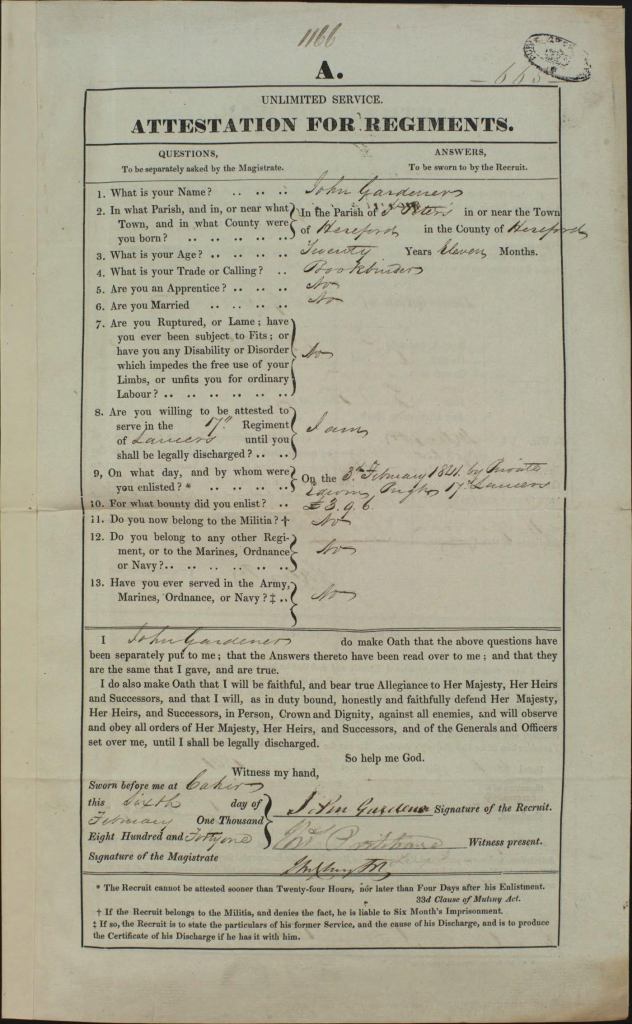 1166
A.
UNLIMITED SERVICE.
ATTESTATION FOR REGIMENTS.
QUESTIONS, ANSWERS,
To be separately asked by the Magistrate. To be sworn to by the Recruit.
1. What is your Name? .. .. .. John Gardener
2. In what Parish, and in, or near what In the Parish of St Peters in or near the Town
Town, and in what County were of Hereford in the County of Hereford
you born? .. .. .. .. ..
3. What is your Age? .. .. .. .. Twenty Years Eleven Months.
4. What is your Trade or Calling? .. Bookbinder
5. Are you an Apprentice? .. .. .. No
6. Are you Married .. .. .. .. No
7. Are you Ruptured, or Lame; have
you ever been subject to Fits; or
have you any Disability or Disorder No
which impedes the free use of your
Limbs, or unfits you for ordinary
Labour? .. .. .. .. .. ..
8. Are you willing to be attested to
serve in the 17th Regiment I am
of Lancers until you
shall be legally discharged? .. ..
9, On what day, and by whom were On the 3rd February 1841 by Private
you enlisted? * .. .. .. .. 17th Lancers
10. For what bounty did you enlist? .. £3.9.6
11. Do you now belong to the Militia? † No
12. Do you belong to any other Regi-
ment, or to the Marines, Ordnance No
or Navy? .. .. .. .. .. ..
13. Have you ever served in the Army,
Marines, Ordnance, or Navy? ‡ .. No
I John Gardener do make Oath that the above questions have
been separately put to me; that the Answers thereto have been read over to me; and that they
are the same that I gave, and are true.
I do also make Oath that I will be faithful, and bear true Allegiance to Her Majesty, Her Heirs
and Successors, and that I will, as in duty bound, honestly and faithfully defend Her Majesty,
Her Heirs, and Successors, in Person, Crown and Dignity, against all enemies, and will observe
and obey all orders of Her Majesty, Her Heirs, and Successors, and of the Generals and Officers
set over me, until I shall be legally discharged.
So help me God.
Witness my hand,
Sworn before me at Caher
this Sixth day of John Gardener Signature of the Recruit.
February One Thousand
Eight Hundred and Forty one Witness present.
Signature of the Magistrate
* The Recruit cannot be attested sooner than Twenty-four Hours, nor later than Four Days after his Enlistment.
33d Clause of Mutiny Act.
† If the Recruit belongs to the Militia, and denies the fact, he is liable to Six Month's Imprisonment.
‡ If so, the Recruit is to state the particulars of his former Service, and the cause of his Discharge, and is to produce
the Certificate of his Discharge if he has it with him.